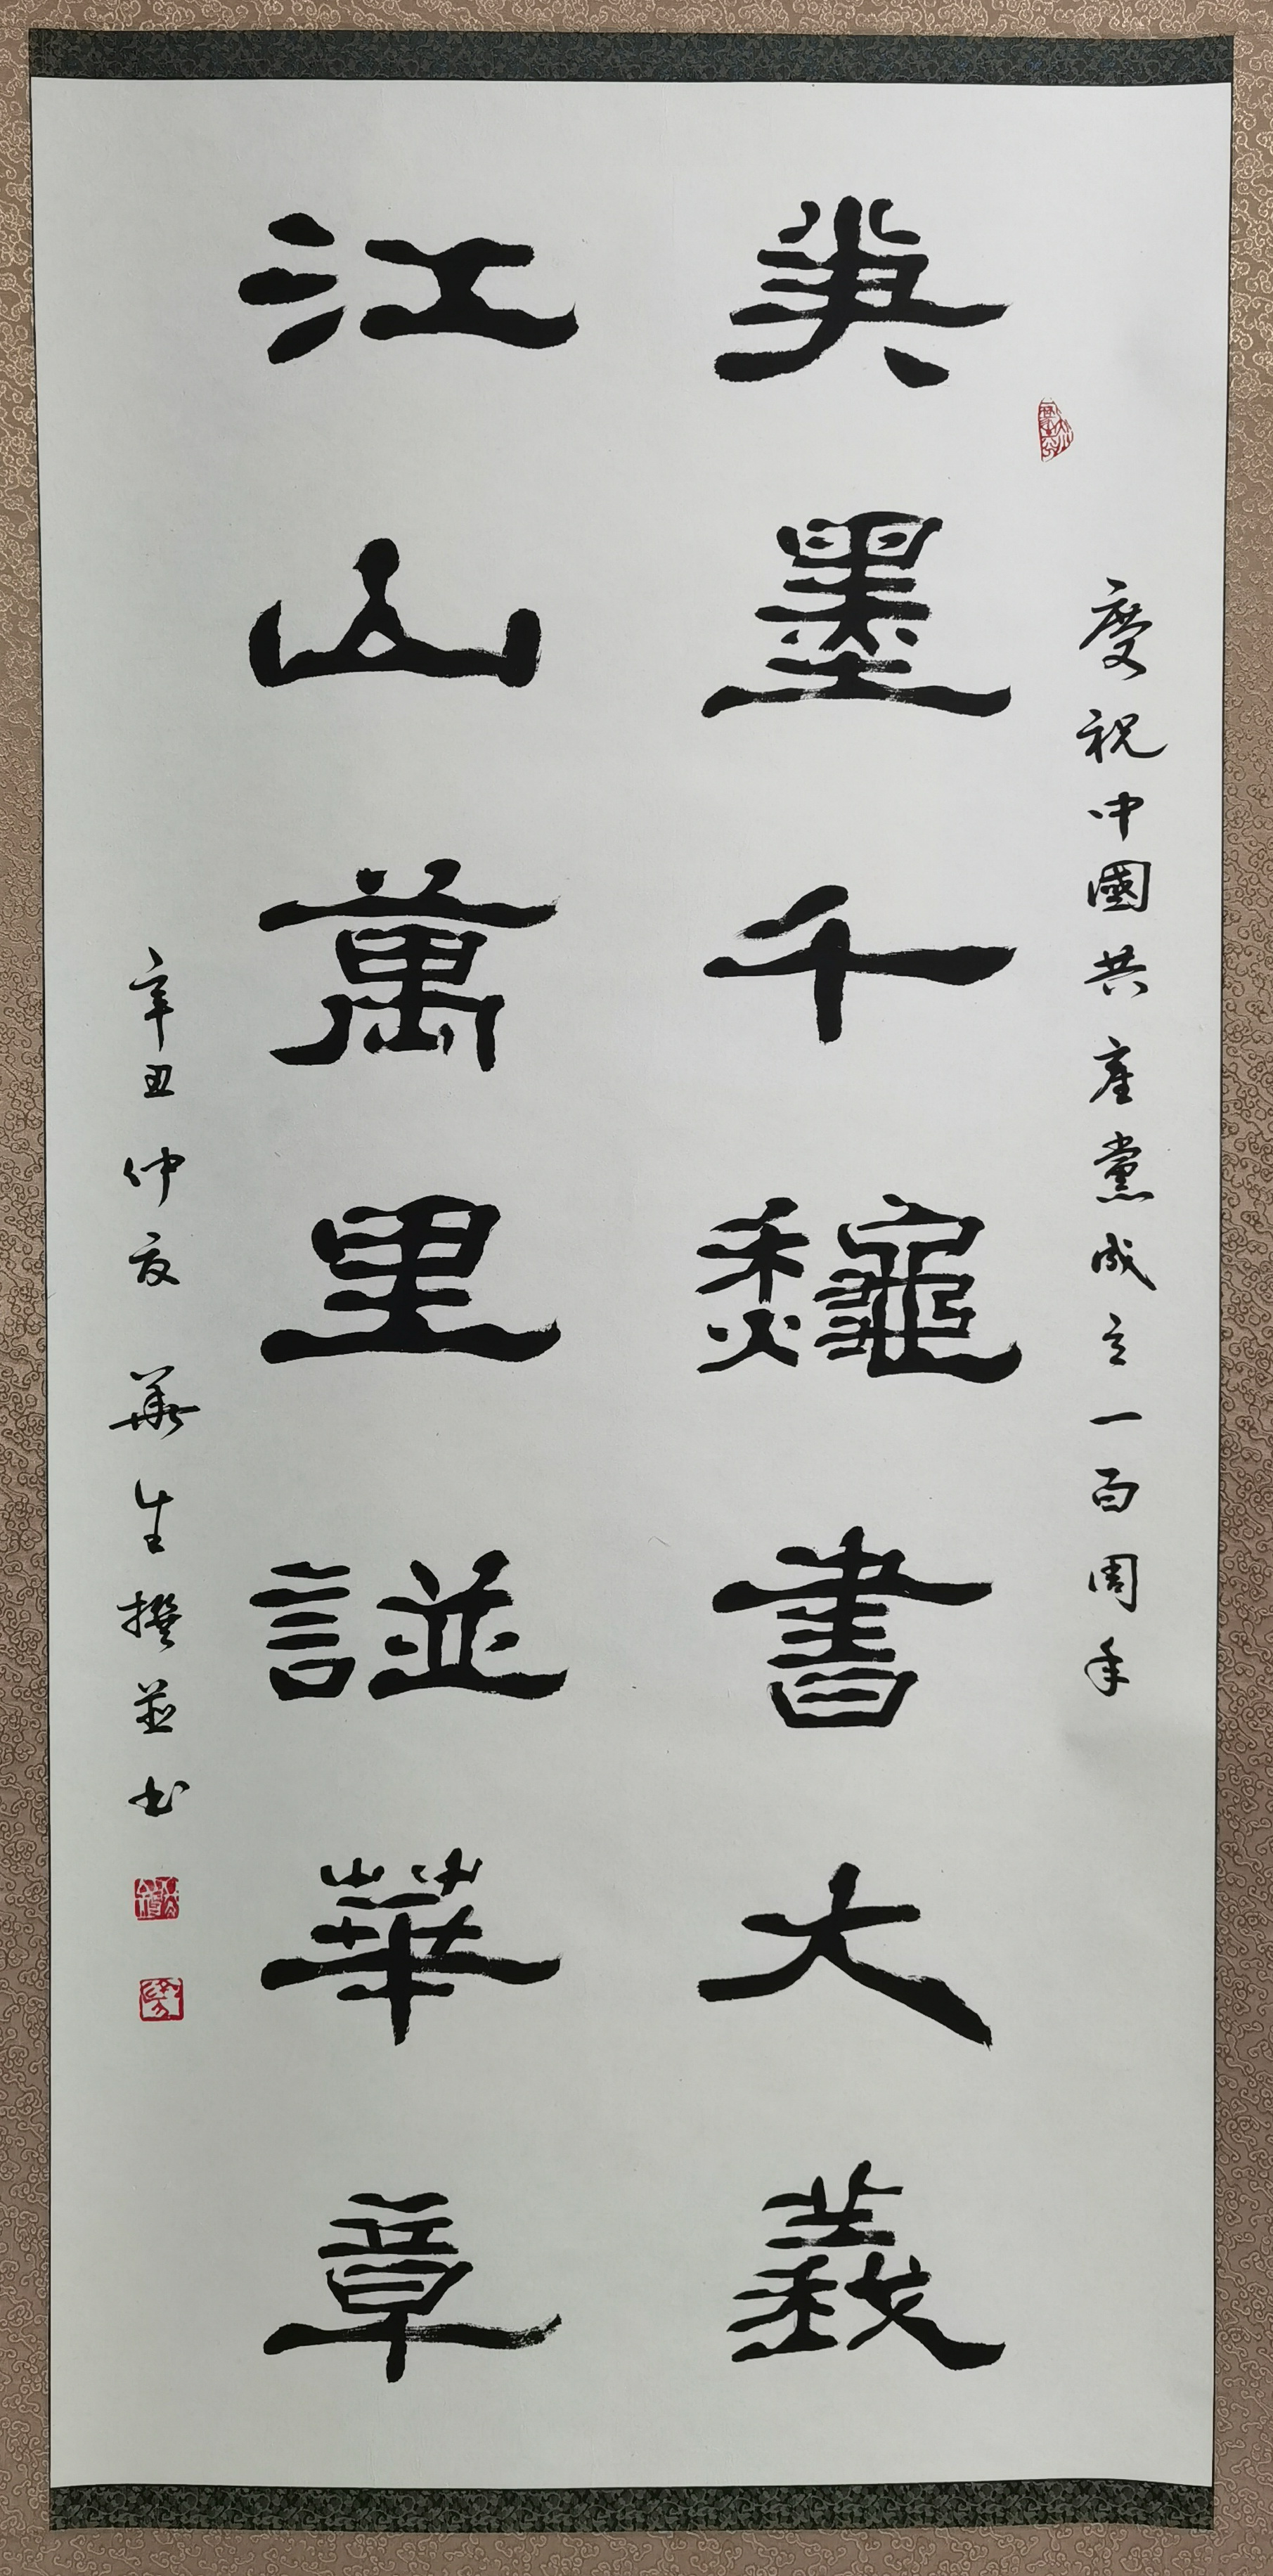 慶祝中國共產黨成立一百周年
墨千龝書大義
江山萬里譜華章
辛丑仲夏 華生撰並书